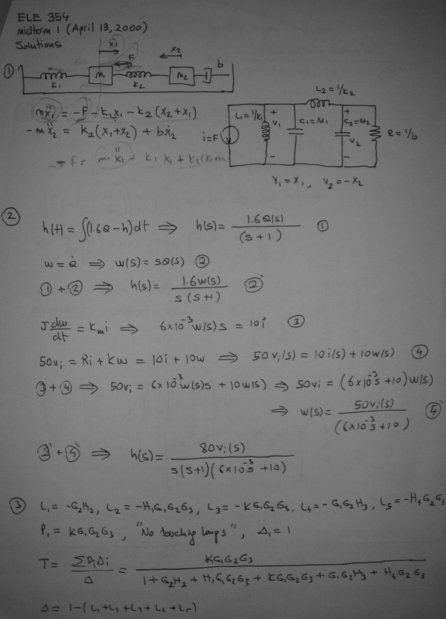 ELE 354
midterm 1 (April 13, 2000)
Solutions
①
x₁ F x₂
k₁ M₁ k₂ M₂ b
mẍ₁ = -F - k₁x₁ - k₂(x₂+x₁)
-mẍ₂ = k₂(x₁+x₂) + bẋ₂
L₂ = 1/k₂
i=F L₁=1/k₁ + V₁ - C₁=M₁ C₂=M₂ + V₂ - R=1/b
V₁ = ẋ₁, V₂ = -ẋ₂
②
h(t) = ∫(1.6Q-h)dt ⇒ h(s) = 1.6Q(s)/(s+1) ①
w = Q̇ ⇒ w(s) = sQ(s) ②
① + ② ⇒ h(s) = 1.6w(s)/s(s+1) ②'
J dw/dt = Kₘi ⇒ 6x10⁻³w(s)s = 10i ③
50vᵢ = Ri + Kw = 10i + 10w ⇒ 50vᵢ(s) = 10i(s) + 10w(s) ④
③ + ④ ⇒ 50vᵢ = 6x10⁻³w(s)s + 10w(s) ⇒ 50vᵢ = (6x10⁻³s + 10)w(s)
⇒ w(s) = 50vᵢ(s)/(6x10⁻³s + 10)
⇒ h(s) = 80vᵢ(s)/s(s+1)(6x10⁻³s + 10)
③ L₁ = -G₂H₂, L₂ = -H₁G₁G₂G₃, L₃ = -KG₁G₂G₃, L₄ = -G₁G₂H₃, L₅ = -H₄G₂G₃
P₁ = KG₁G₂G₃, "No touching loops", Δ₁ = 1
T = ΣPᵢΔᵢ/Δ = KG₁G₂G₃/1 + G₂H₂ + H₁G₁G₂G₃ + KG₁G₂G₃ + G₁G₂H₃ + H₄G₂G₃
Δ = 1 - (L₁ + L₂ + L₃ + L₄ + L₅)